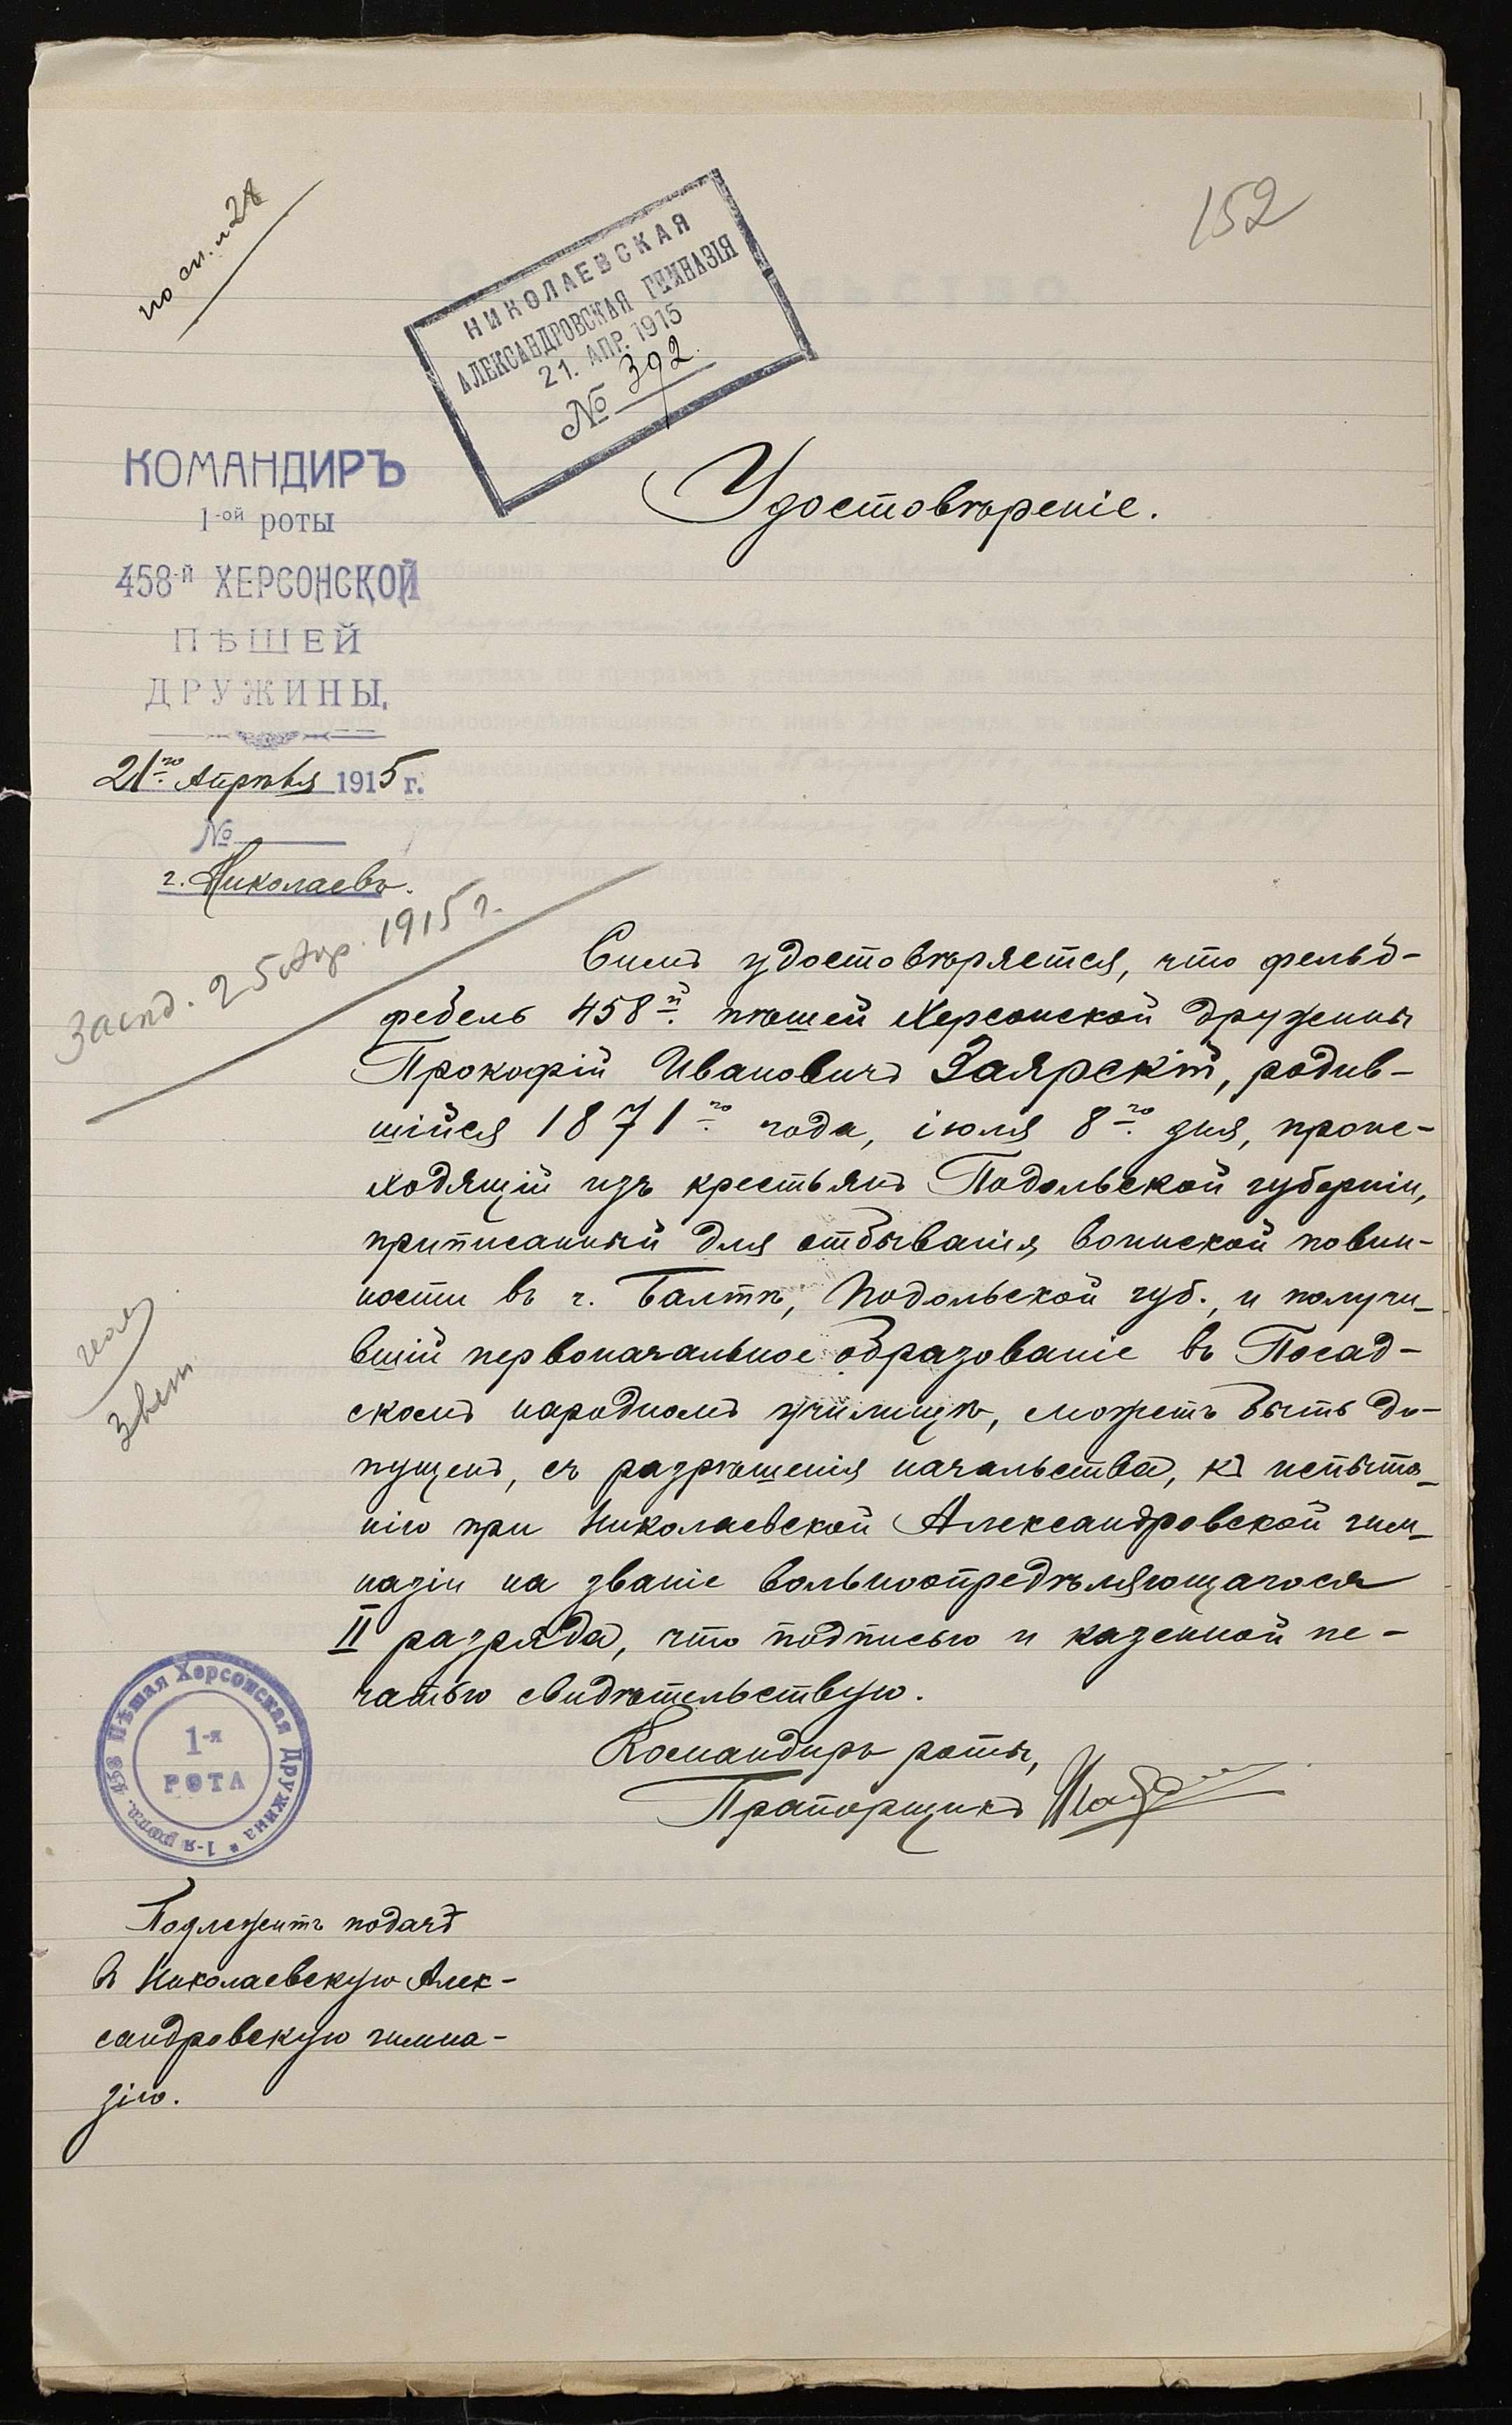 по сп. №28
152
НИКОЛАЕВСКАЯ
АЛЕКСАНДРОВСКАЯ ГИМНАЗІЯ
21. АПР. 1915
№ 392.
КОМАНДИРЪ
1-ой роты
458-й ХЕРСОНСКОЙ
ПѢШЕЙ
ДРУЖИНЫ.
21го Апрѣля 1915 г.
№
г. Николаевъ.
Удостовѣреніе.
25 Апр. 1915 г.
Симъ удостовѣряется, что фельд-
фебель 458й пѣшей Херсонской дружины
Прокофій Ивановичъ Заярскій, родив-
шійся 1871го года, іюля 8го дня, проис-
ходящій изъ крестьянъ Подольской губерніи,
приписанный для отбыванія воинской повин-
ности въ г. Балтѣ, Подольской губ., и получи-
вшій первоначальное образованіе въ Посад-
скомъ народномъ училищѣ, можетъ быть до-
пущенъ, съ разрѣшенія начальства, къ испыта-
нію при Николаевской Александровской гим-
назіи на званіе вольноопредѣляющагося
II разряда, что подписью и казенной пе-
чатью свидѣтельствую.
Командиръ роты,
Прапорщикъ
458 Пѣшая Херсонская Дружина * 1-я рота.
1-я
РОТА
Подлежитъ подачѣ
въ Николаевскую Алек-
сандровскую гимна-
зію.